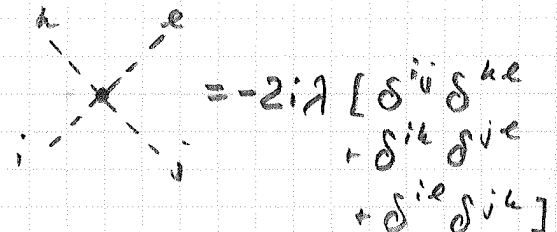 k l
= -2iλ [ δ^{ij} δ^{kl}
i j + δ^{ik} δ^{jl}
+ δ^{il} δ^{jk} ]